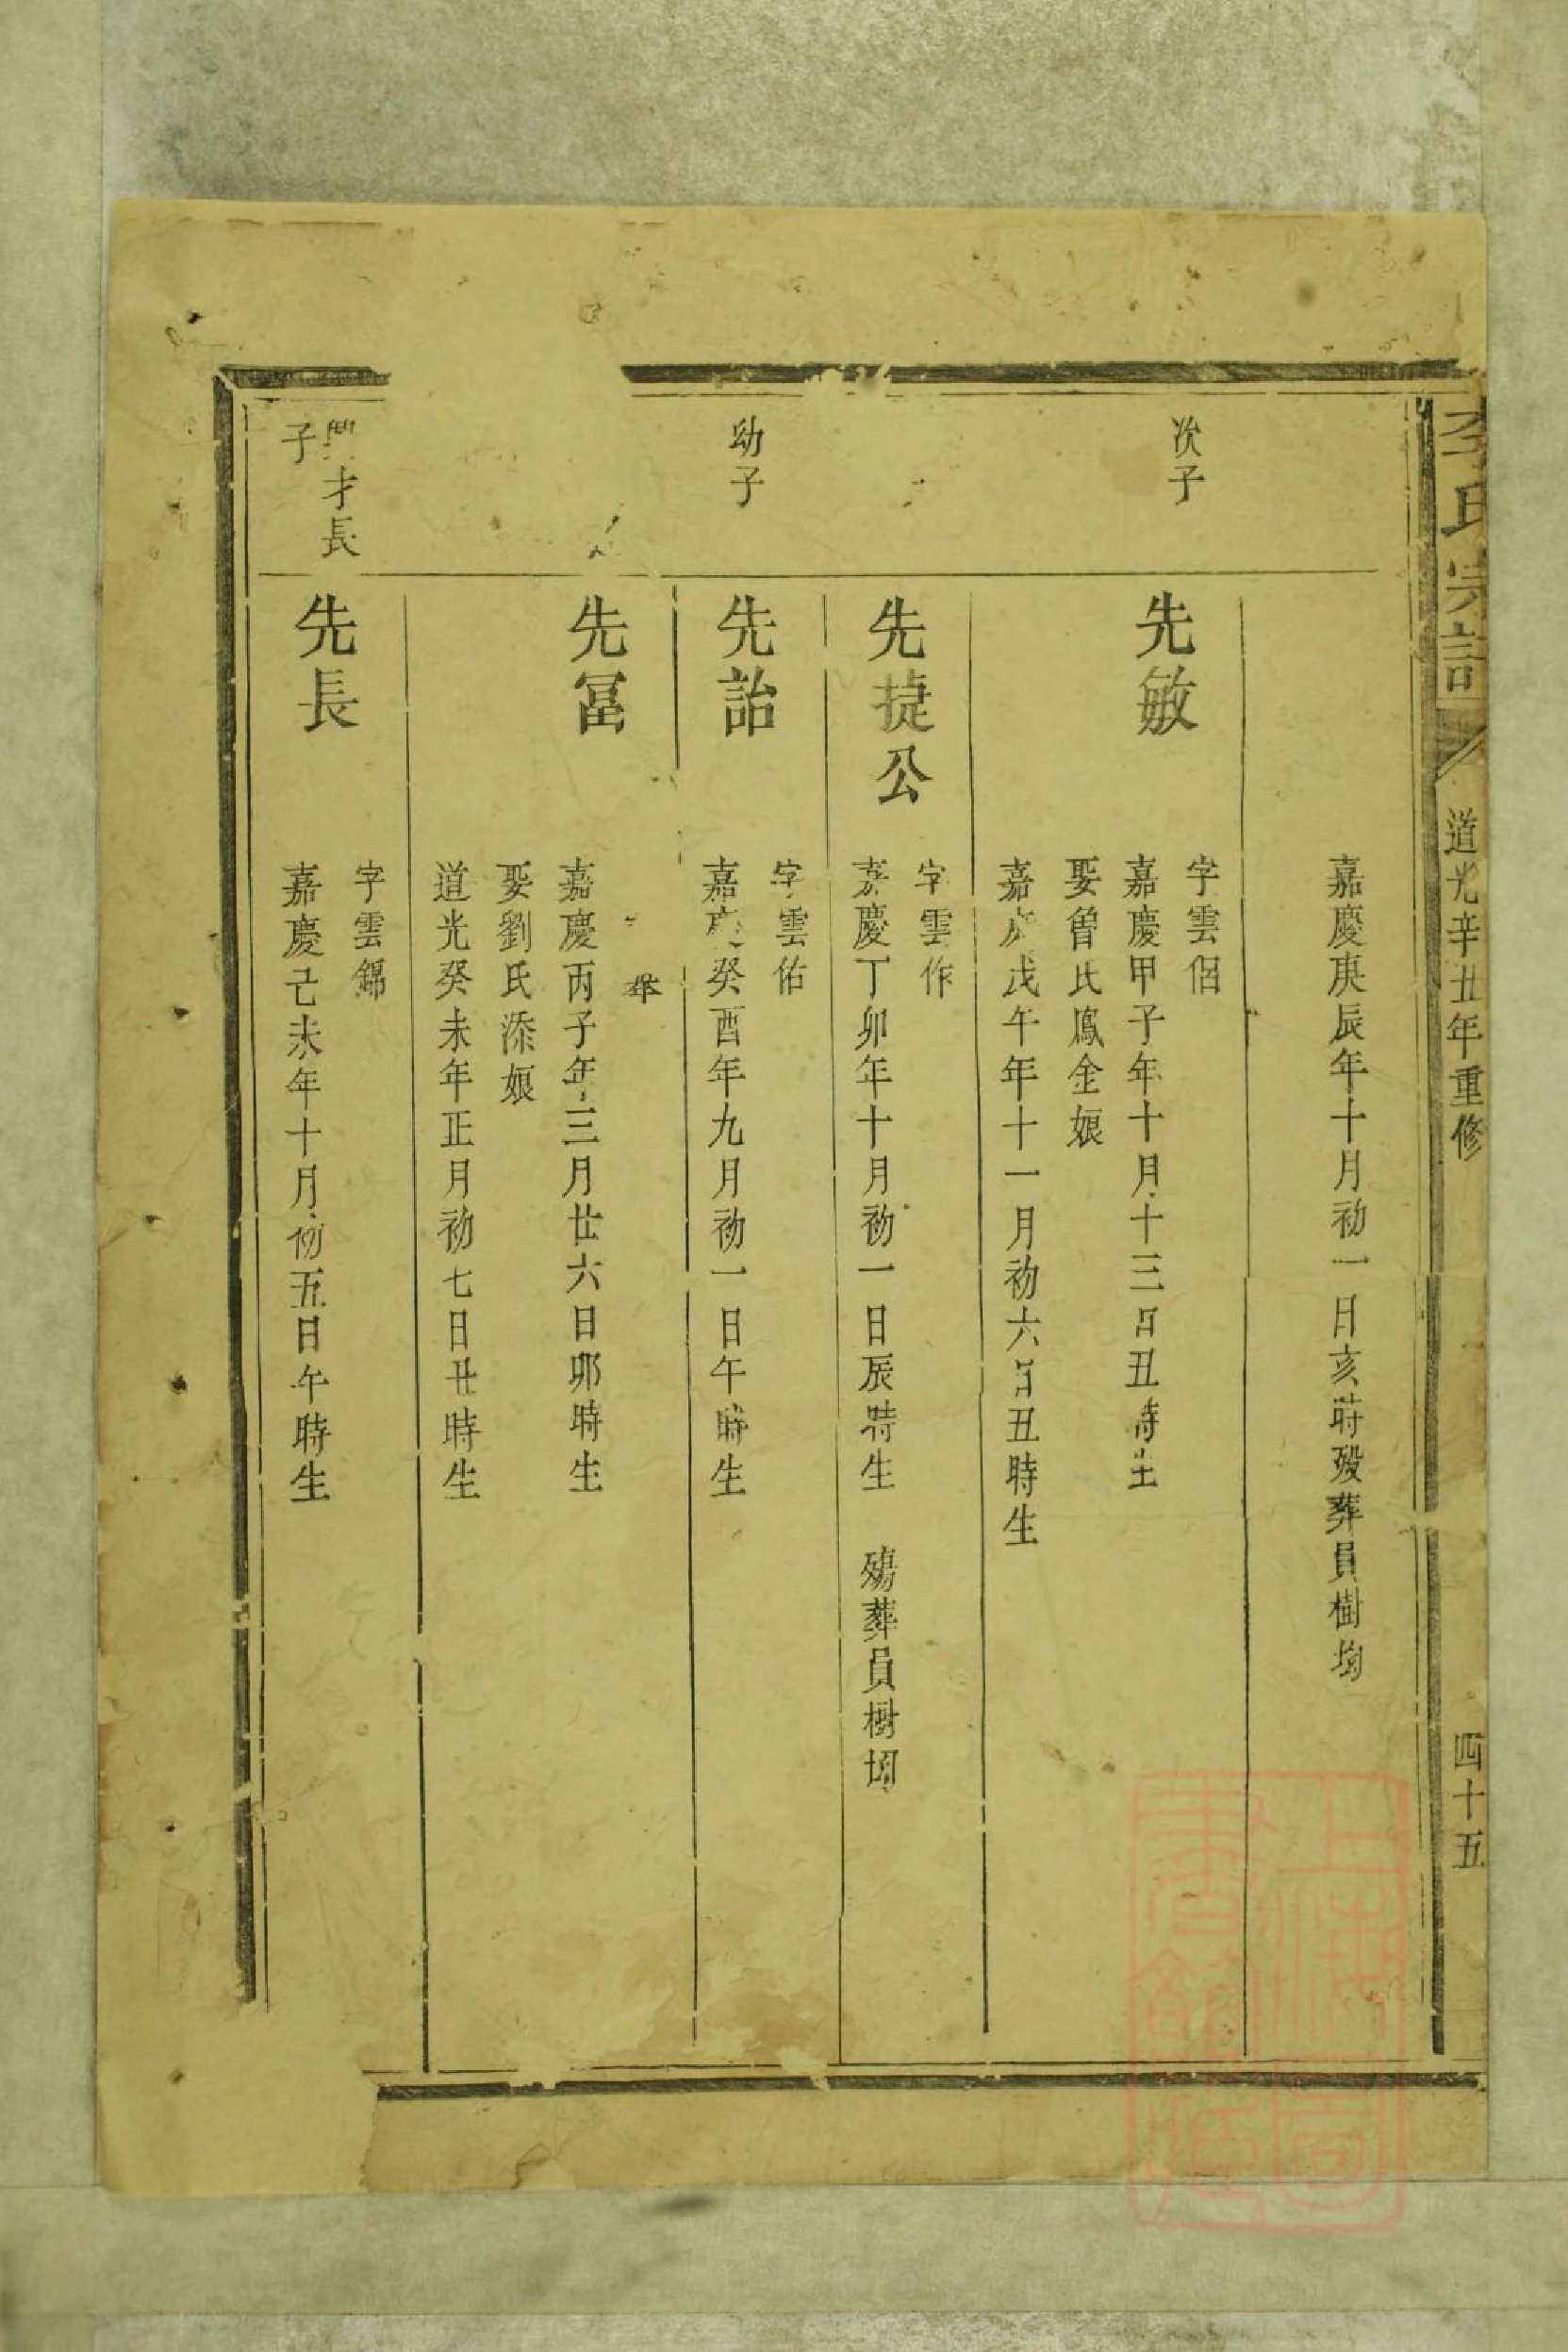 李氏宗譜
道光辛丑年重修
四十五
嘉慶庚辰年十月初一日亥時殁葬員樹坳
次子
先敏
字雲佀
嘉慶甲子年十月十三日丑時生
娶曾氏鳳金娘
嘉慶戊午年十一月初六日丑時生
先捷公
字雲作
嘉慶丁卯年十月初一日辰時生 殤葬員樹坳
幼子
先詒
字雲佑
嘉慶癸酉年九月初一日午時生
先冨
嘉慶丙子年三月廿六日卯時生
娶劉氏添娘
道光癸未年正月初七日丑時生
才長
子
先長
字雲錦
嘉慶己未年十月初五日午時生
上海圖書館藏